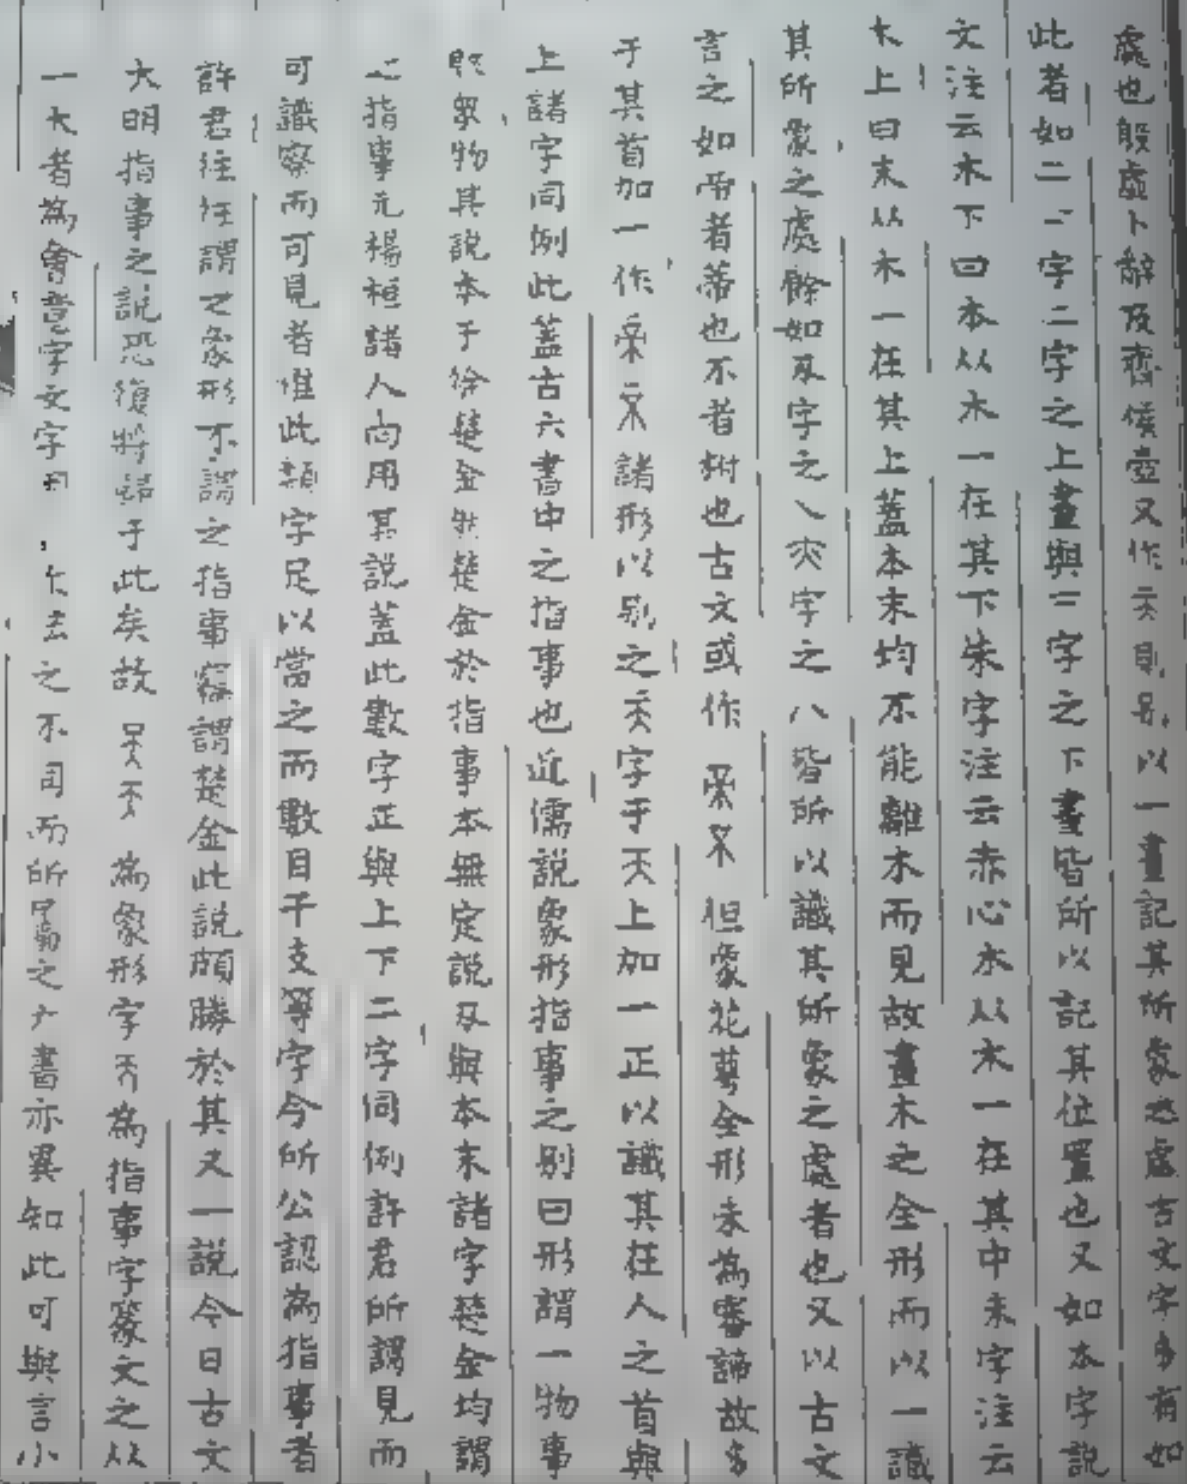 處也殷虛卜辭及齊侯壺又作天則別以一畫記其所象之處古文字多有如
此者如二二字二字之上畫與二字之下畫皆所以記其位置也又如本字說
文注云木下曰本从木一在其下朱字注云赤心木从木一在其中末字注云
木上曰末从木一在其上蓋本末均不能離木而見故畫木之全形而以一識
其所象之處餘如叉字之乀夾字之八皆所以識其所象之處者也又以古文
言之如帝者蒂也不者柎也古文或作但象花萼全形未為審諦故多
于其首加一作諸形以別之天字于天上加一正以識其在人之首與
上諸字同例此蓋古六書中之指事也近儒說象形指事之別曰形謂一物事
眾物其說本于徐楚金然楚金於指事本無定說及與本末諸字楚金均謂
之指事元楊桓諸人尚用其說蓋此數字正與上下二字同例許君所謂見而
可識察而可見者惟此類字足以當之而數目干支等字今所公認為指事者
許君往往謂之象形不謂之指事竊謂楚金此說頗勝於其又一說今日古文
大明指事之說恐復將歸于此矣故為象形字天為指事字篆文之从
一大者為會意字文字因作法之不同而所屬之六書亦異知此可與言小